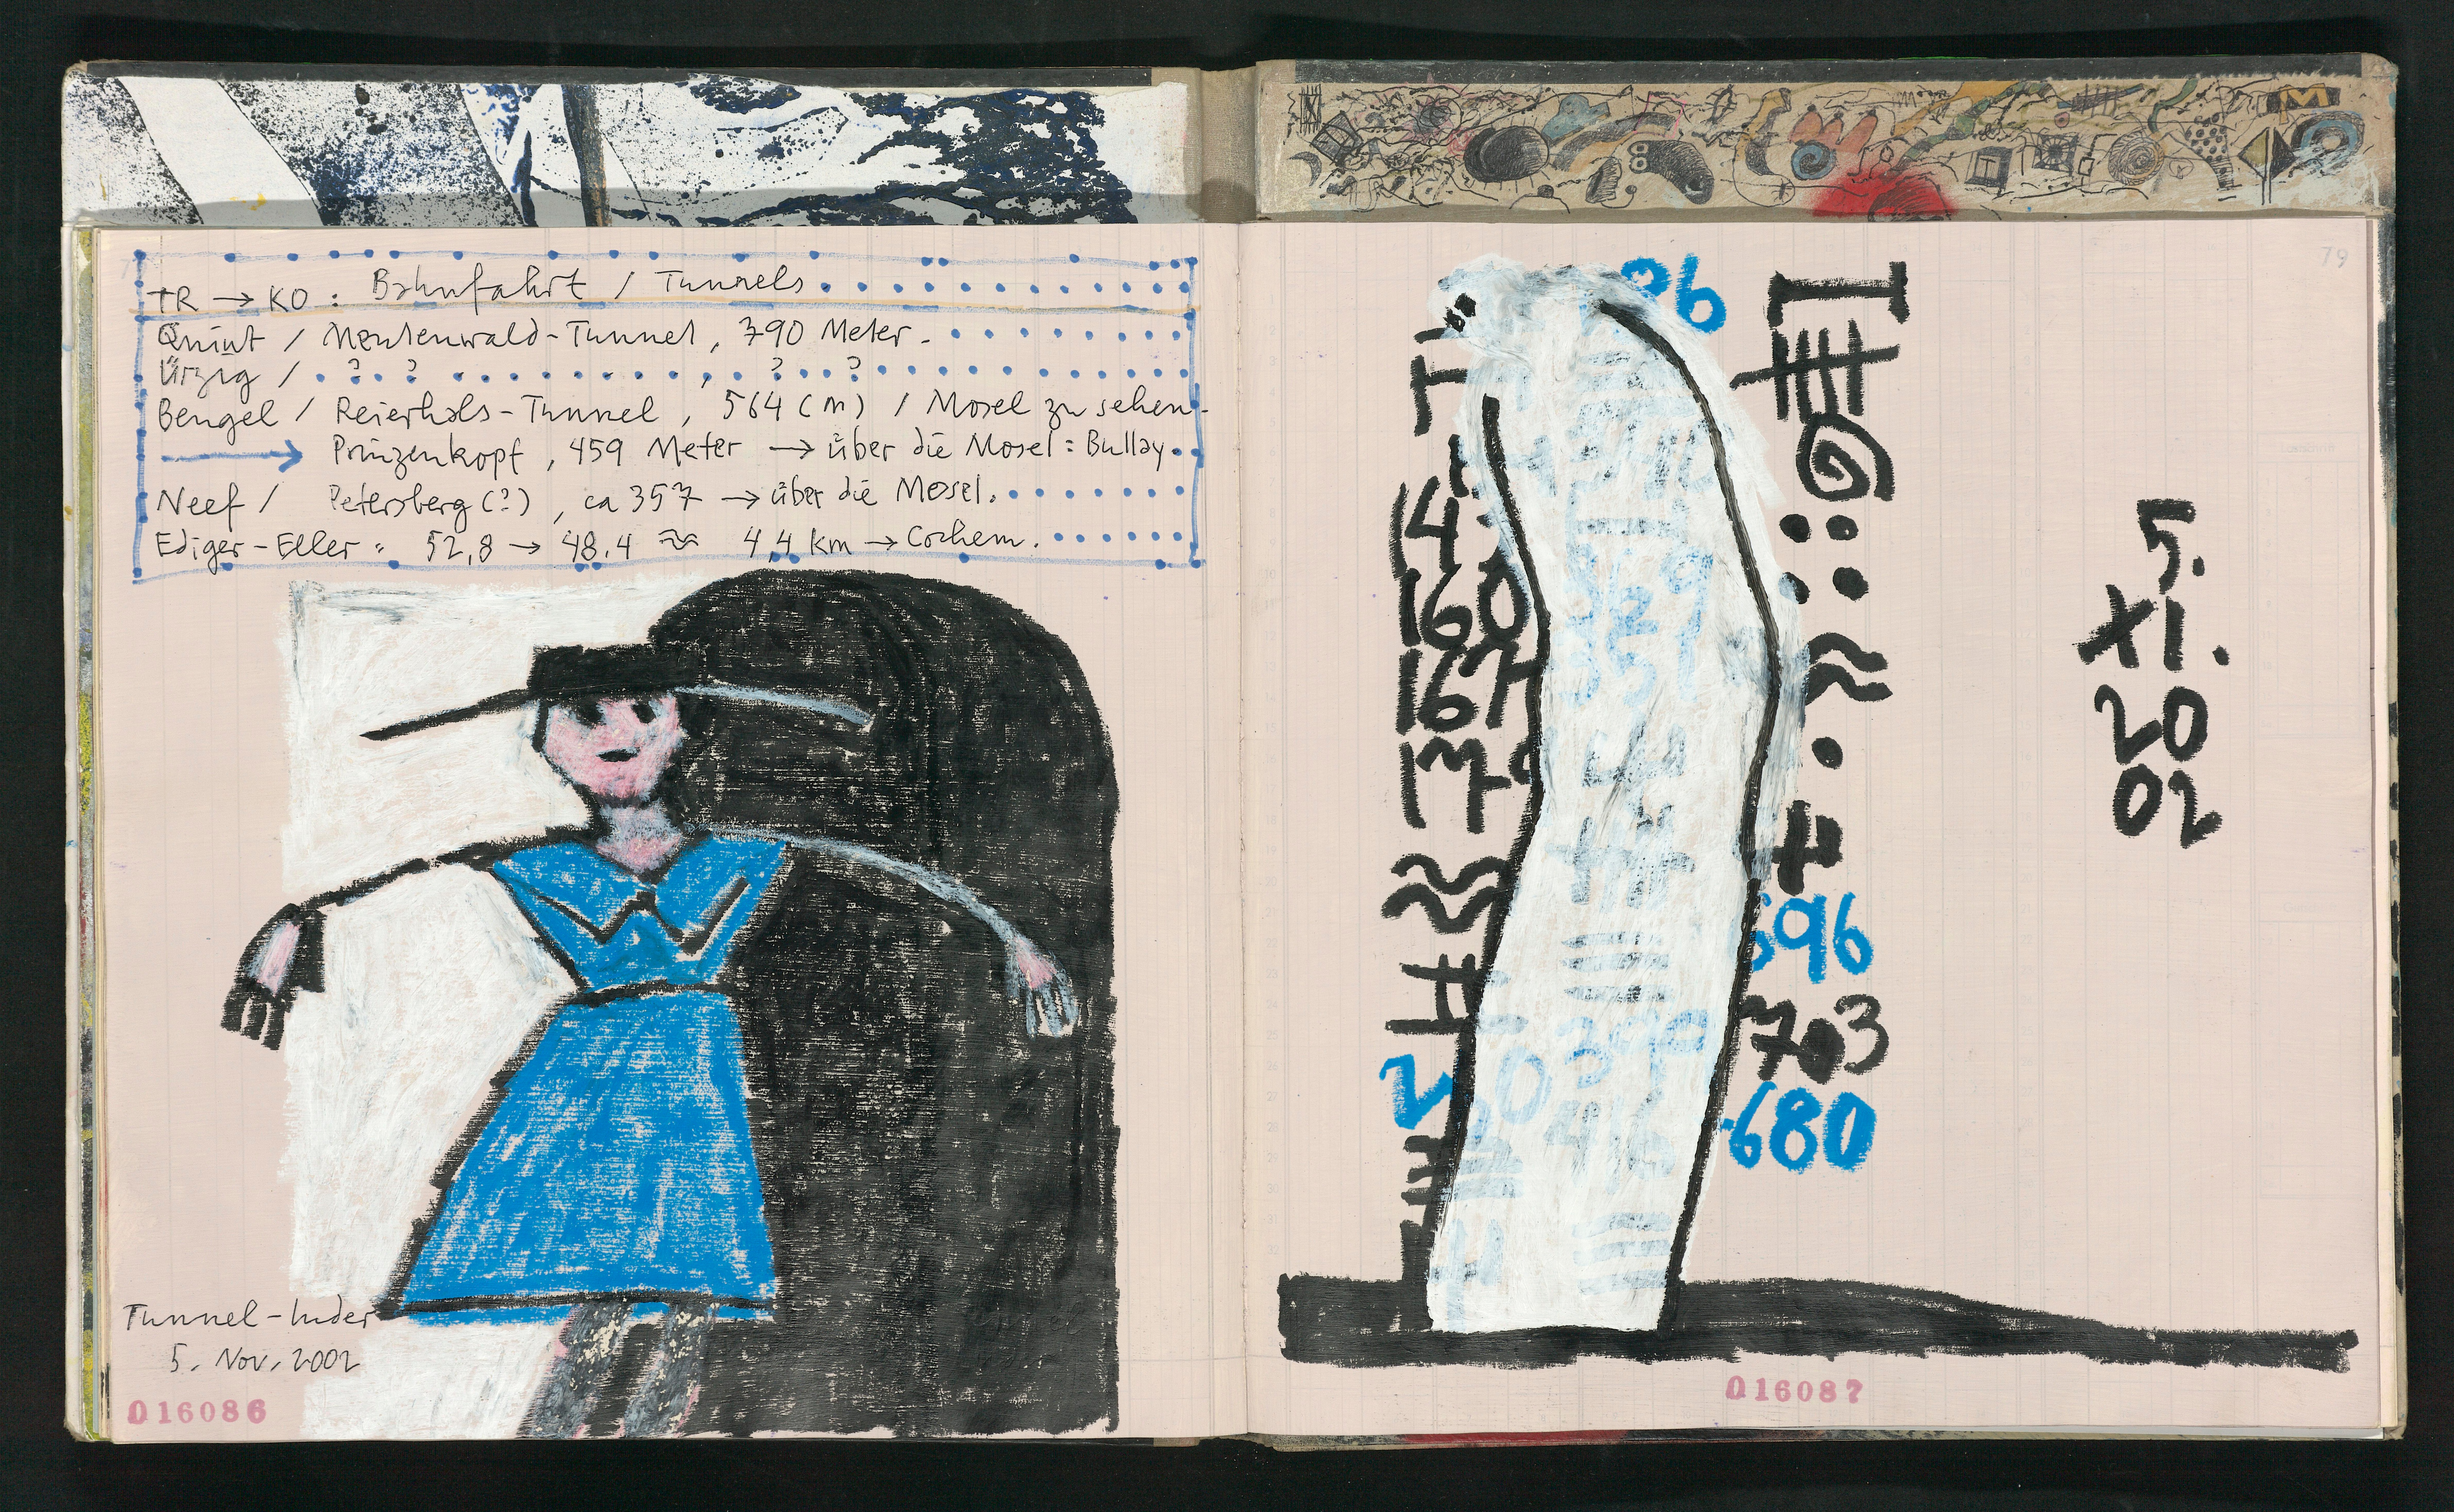 TR → KO : Bahnfahrt / Tunnels
Quint / Meulenwald-Tunnel, 790 Meter.
Ürzig / ? ? , ? ?
Bengel / Reierhals-Tunnel, 564 (m) / Mosel zu sehen
→ Prinzenkopf, 459 Meter → über die Mosel: Bullay
Neef / Petersberg (?), ca 357 → über die Mosel.
Ediger-Eller = 52,8 → 48,4 ≈ 4,4 km → Cochem.
Tunnel-
5. Nov. 2002
016086
79
96
14
160
167
17
329
351
696
703
039
2
680
5.
XI.
20
02
016087